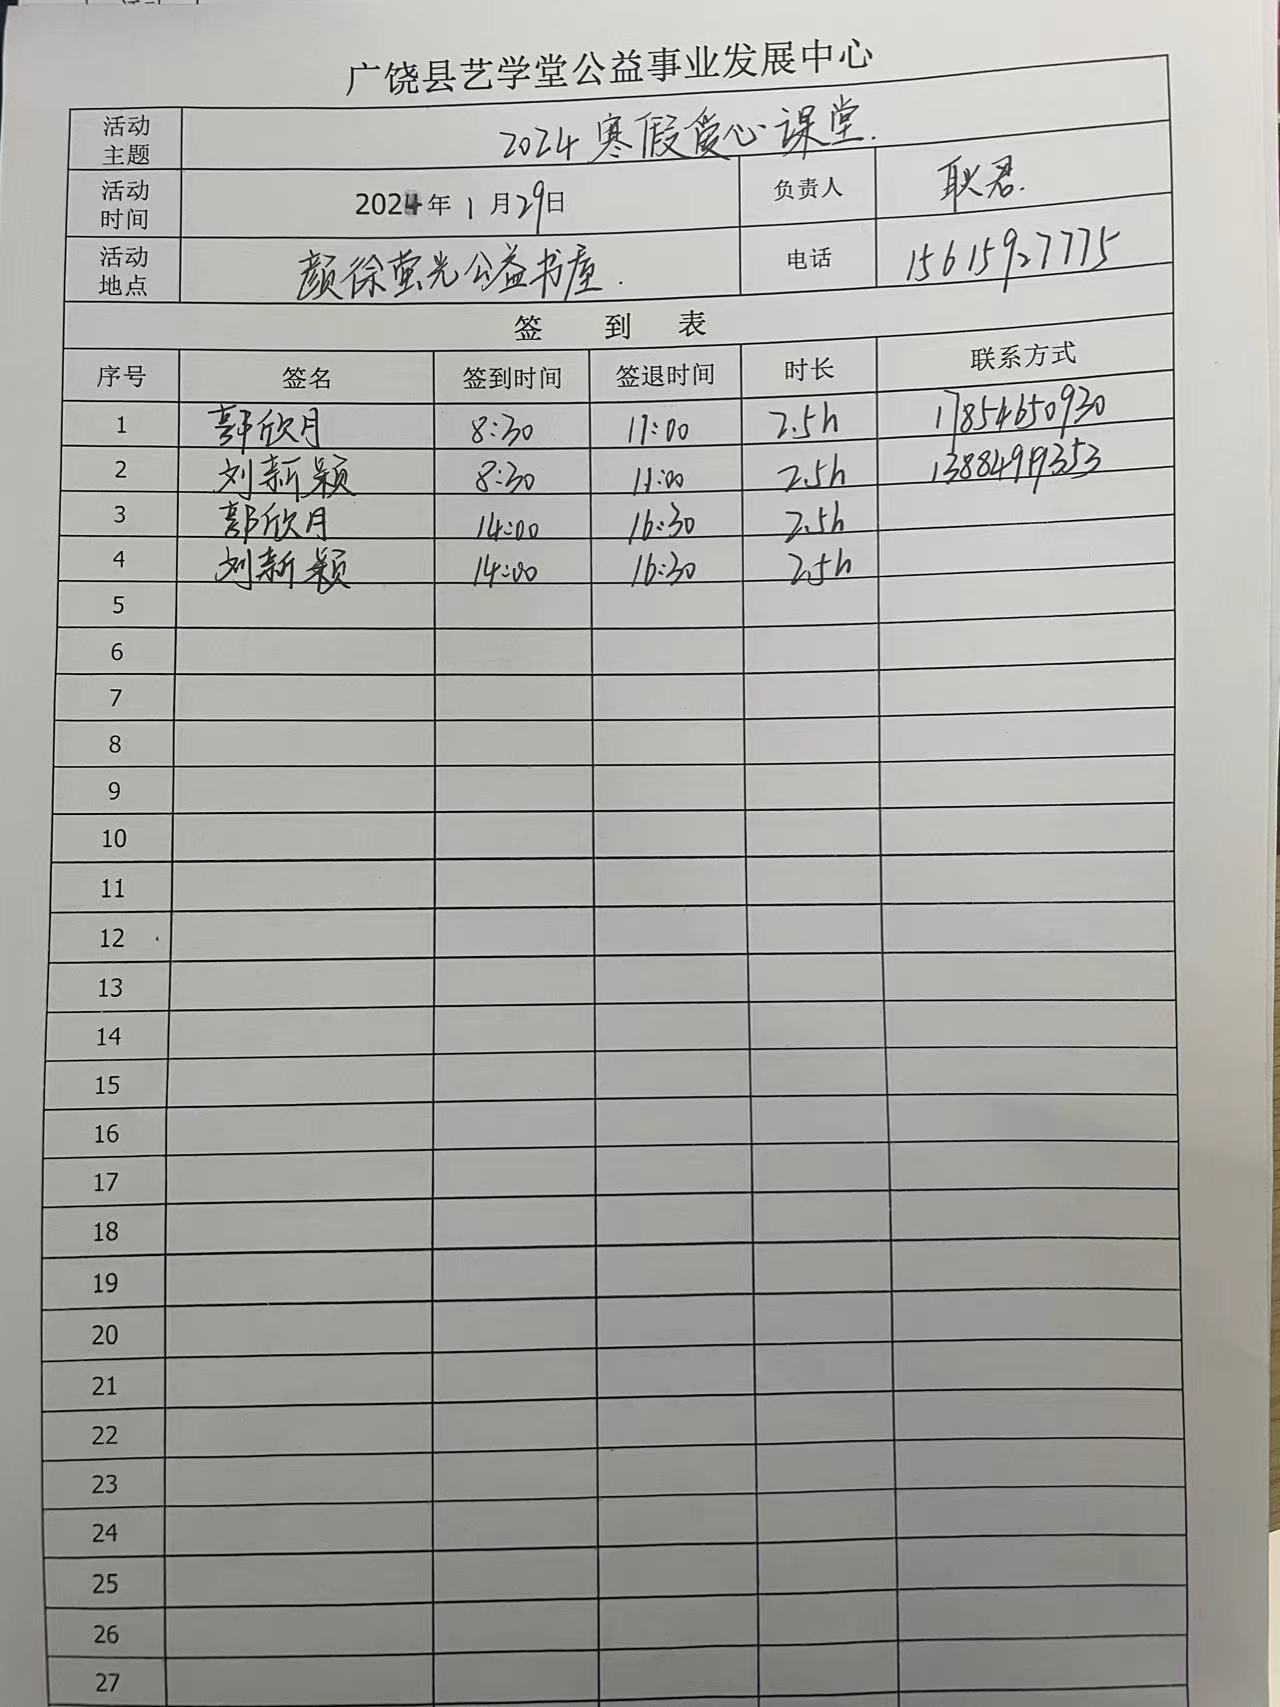 广饶县艺学堂公益事业发展中心
活动主题 2024寒假爱心课堂.
活动时间 2024年1月29日 负责人 耿君.
活动地点 颜徐萤光公益书屋. 电话 15615927775
签 到 表
序号 签名 签到时间 签退时间 时长 联系方式
1 郭欣月 8:30 11:00 2.5h 17854650930
2 刘新颖 8:30 11:00 2.5h
3 郭欣月 14:00 16:30 2.5h
4 刘新颖 14:00 16:30 2.5h
5
6
7
8
9
10
11
12
13
14
15
16
17
18
19
20
21
22
23
24
25
26
27